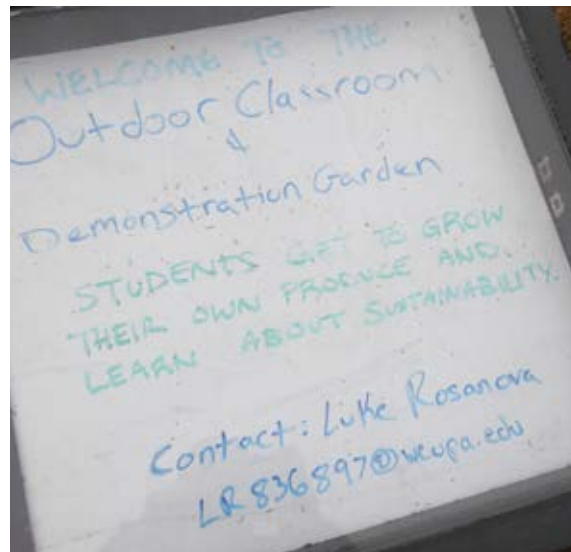 WELCOME TO THE
Outdoor Classroom
&
Demonstration Garden
STUDENTS GET TO GROW
THEIR OWN PRODUCE AND
LEARN ABOUT SUSTAINABILITY.
Contact: Luke Rosanova
LR836897@wcupa.edu